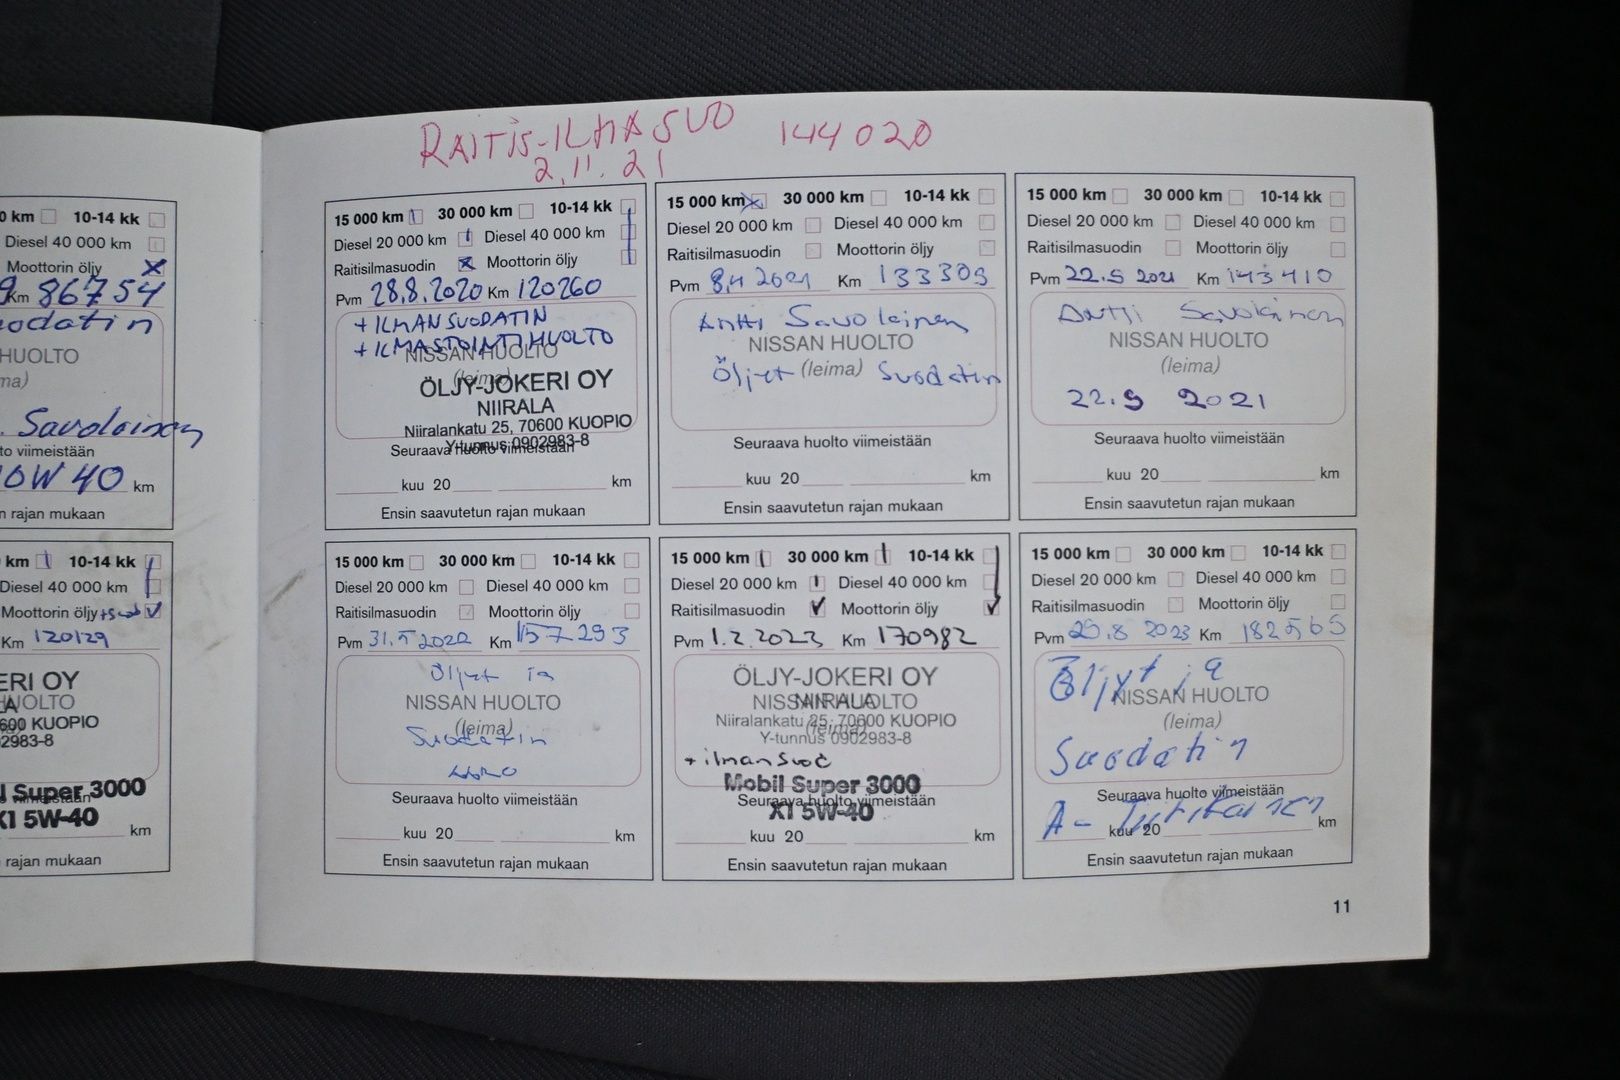 RAITIS-ILMASUO 144020
2.11.21
0 km 10-14 kk
Diesel 40 000 km
Moottorin öljy
Km 86754
uodatin
HUOLTO
ma)
. Savolainen
to viimeistään
10W40 km
n rajan mukaan
km 10-14 kk
Diesel 40 000 km
Moottorin öljy +suod
Km 120129
ERI OY
HUOLTO
LA
600 KUOPIO
2983-8
l Super 3000
viimeistään
X1 5W-40
km
rajan mukaan
15 000 km 30 000 km 10-14 kk
Diesel 20 000 km Diesel 40 000 km
Raitisilmasuodin Moottorin öljy
Pvm 28.8.2020 Km 120260
+ ILMANSUODATIN
+ ILMASTOINTIHUOLTO
NISSAN HUOLTO
(leima)
ÖLJY-JOKERI OY
NIIRALA
Niiralankatu 25, 70600 KUOPIO
Y-tunnus 0902983-8
Seuraava huolto viimeistään
kuu 20 km
Ensin saavutetun rajan mukaan
15 000 km 30 000 km 10-14 kk
Diesel 20 000 km Diesel 40 000 km
Raitisilmasuodin Moottorin öljy
Pvm 8.4 2021 Km 133309
Antti Savolainen
NISSAN HUOLTO
Öljyt (leima) Suodatin
Seuraava huolto viimeistään
kuu 20 km
Ensin saavutetun rajan mukaan
15 000 km 30 000 km 10-14 kk
Diesel 20 000 km Diesel 40 000 km
Raitisilmasuodin Moottorin öljy
Pvm 22.9 2021 Km 143410
Antti Savolainen
NISSAN HUOLTO
(leima)
22.9 2021
Seuraava huolto viimeistään
kuu 20 km
Ensin saavutetun rajan mukaan
15 000 km 30 000 km 10-14 kk
Diesel 20 000 km Diesel 40 000 km
Raitisilmasuodin Moottorin öljy
Pvm 31.5 2022 Km 157293
Öljyt ja
NISSAN HUOLTO
(leima)
Suodatin
Seuraava huolto viimeistään
kuu 20 km
Ensin saavutetun rajan mukaan
15 000 km 30 000 km 10-14 kk
Diesel 20 000 km Diesel 40 000 km
Raitisilmasuodin Moottorin öljy
Pvm 1.2.2023 Km 170982
ÖLJY-JOKERI OY
NISSAN HUOLTO
NIIRALA
Niiralankatu 25, 70600 KUOPIO
(leima)
Y-tunnus 0902983-8
+ ilmansuod
Mobil Super 3000
Seuraava huolto viimeistään
X1 5W-40
kuu 20 km
Ensin saavutetun rajan mukaan
15 000 km 30 000 km 10-14 kk
Diesel 20 000 km Diesel 40 000 km
Raitisilmasuodin Moottorin öljy
Pvm 29.8 2023 Km 182565
Öljyt ja
NISSAN HUOLTO
(leima)
Suodatin
Seuraava huolto viimeistään
A-
kuu 20 km
Ensin saavutetun rajan mukaan
11